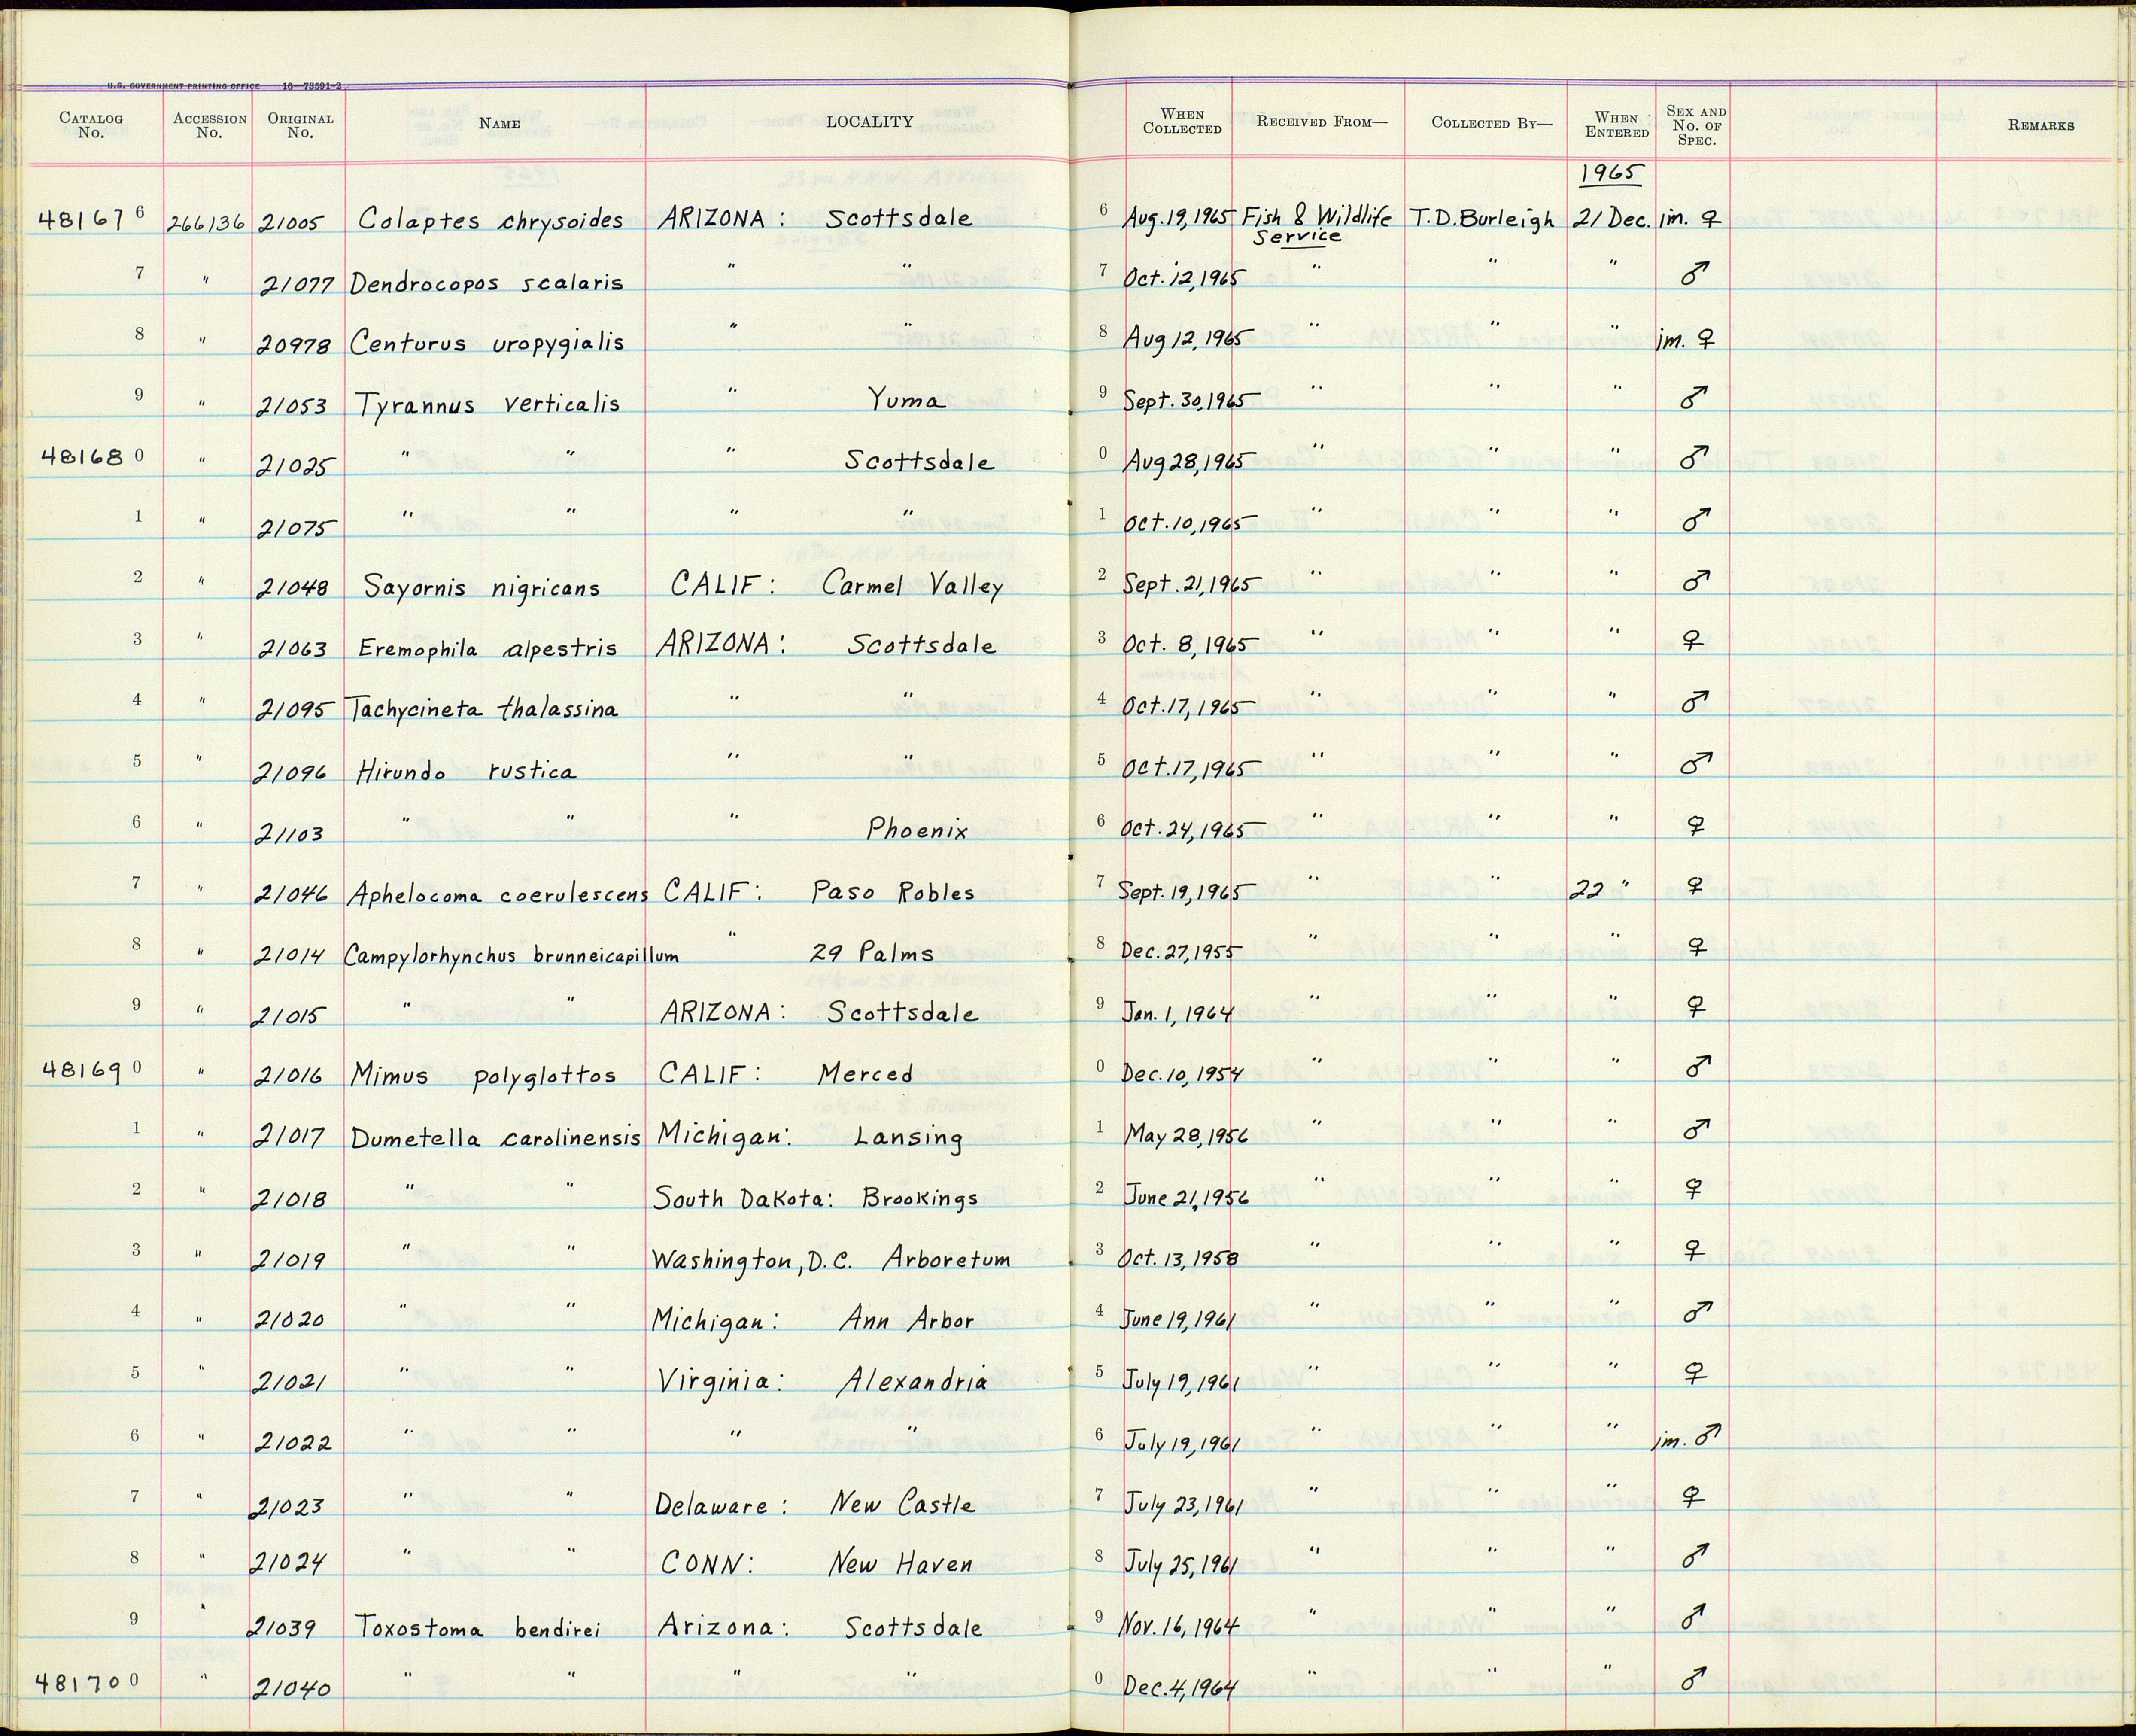 U.S. GOVERNMENT PRINTING OFFICE 16—73591-2
CATALOG No. ACCESSION No. ORIGINAL No. NAME LOCALITY WHEN COLLECTED RECEIVED FROM— COLLECTED BY— WHEN ENTERED SEX AND No. OF SPEC. REMARKS
1965
48167 6 266136 21005 Colaptes chrysoides ARIZONA: Scottsdale 6 Aug. 19, 1965 Fish & Wildlife Service T.D. Burleigh 21 Dec. im. ♀
7 " 21077 Dendrocopos scalaris " " 7 Oct. 12, 1965 " " " ♂
8 " 20978 Centurus uropygialis " " 8 Aug 12, 1965 " " " im. ♀
9 " 21053 Tyrannus verticalis " Yuma 9 Sept. 30, 1965 " " " ♂
48168 0 " 21025 " " " Scottsdale 0 Aug 28, 1965 " " " ♂
1 " 21075 " " " " 1 Oct. 10, 1965 " " " ♂
2 " 21048 Sayornis nigricans CALIF: Carmel Valley 2 Sept. 21, 1965 " " " ♂
3 " 21063 Eremophila alpestris ARIZONA: Scottsdale 3 Oct. 8, 1965 " " " ♀
4 " 21095 Tachycineta thalassina " " 4 Oct. 17, 1965 " " " ♂
5 " 21096 Hirundo rustica " " 5 Oct. 17, 1965 " " " ♂
6 " 21103 " " " Phoenix 6 Oct. 24, 1965 " " " ♀
7 " 21046 Aphelocoma coerulescens CALIF: Paso Robles 7 Sept. 19, 1965 " " 22 " ♀
8 " 21014 Campylorhynchus brunneicapillum " 29 Palms 8 Dec. 27, 1955 " " " ♀
9 " 21015 " " ARIZONA: Scottsdale 9 Jan. 1, 1964 " " " ♀
48169 0 " 21016 Mimus polyglottos CALIF: Merced 0 Dec. 10, 1954 " " " ♂
1 " 21017 Dumetella carolinensis Michigan: Lansing 1 May 28, 1956 " " " ♂
2 " 21018 " " South Dakota: Brookings 2 June 21, 1956 " " " ♀
3 " 21019 " " Washington, D.C. Arboretum 3 Oct. 13, 1958 " " " ♀
4 " 21020 " " Michigan: Ann Arbor 4 June 19, 1961 " " " ♂
5 " 21021 " " Virginia: Alexandria 5 July 19, 1961 " " " ♀
6 " 21022 " " " " 6 July 19, 1961 " " " im. ♂
7 " 21023 " " Delaware: New Castle 7 July 23, 1961 " " " ♀
8 " 21024 " " CONN: New Haven 8 July 25, 1961 " " " ♂
9 " 21039 Toxostoma bendirei Arizona: Scottsdale 9 Nov. 16, 1964 " " " ♂
48170 0 " 21040 " " " " 0 Dec. 4, 1964 " " " ♂